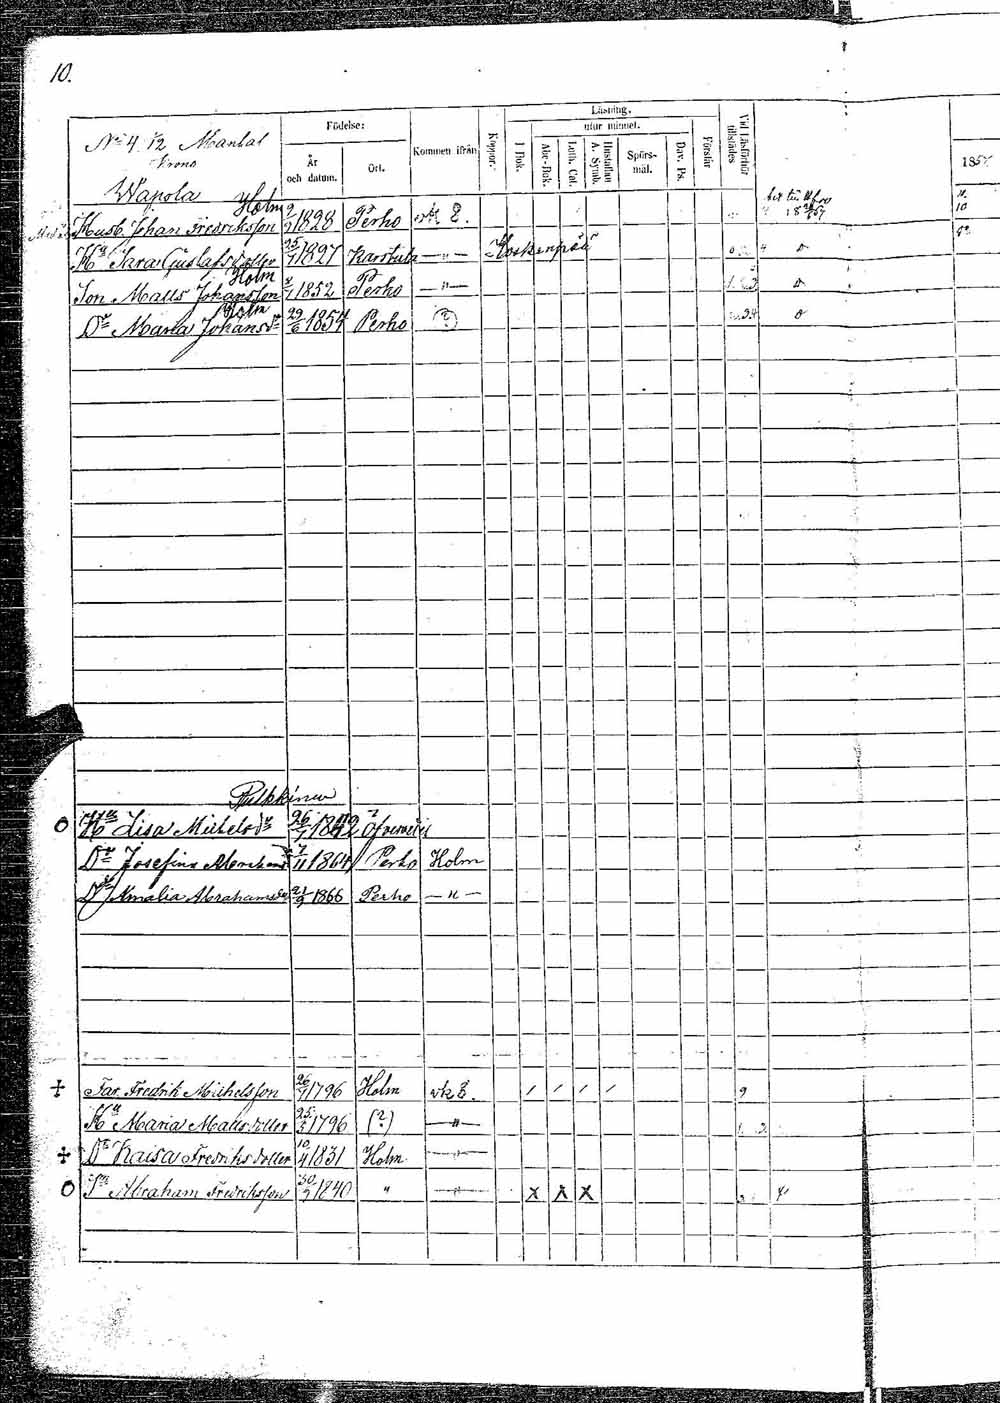 10.
No 4. 1/2 Mantal
Krono
Wapola
Födelse:
År och datum.
Ort.
Kommen ifrån
Koppor.
Läsning.
utur minnet.
I Bok.
Abc-Bok.
Luth. Cat.
Hustaflan A. Symb.
Spörs-mål.
Dav. Ps.
Förstår
Vid Läsförhör tillstädes
185
Holm
Husb. Johan Fredriksson 1828 Perho
Hu Sara Gustafsdotter 25/ 1827 Karstula — " —
Holm
Son Matts Johansson 1852 Perho — " —
Holm
Dr Maria Johansdr 29/6 1854 Perho (?)
Pulkkinen
O Hu Lisa Michelsdr 26/
Dr Josefina 7/11 1864 Perho Holm
Dr Amalia Abrahamsdr 21/9 1866 Perho — " —
+ Far Fredrik Michelsson 26/ 1796 Holm / / / / 9
Hu Maria Mattsdotter 25/5 1796 (?) — " —
+ Dr Kaisa Fredriksdotter 10/4 1831 Holm — " —
O Sn Abraham Fredriksson 30/ 1840 " — " — X X X